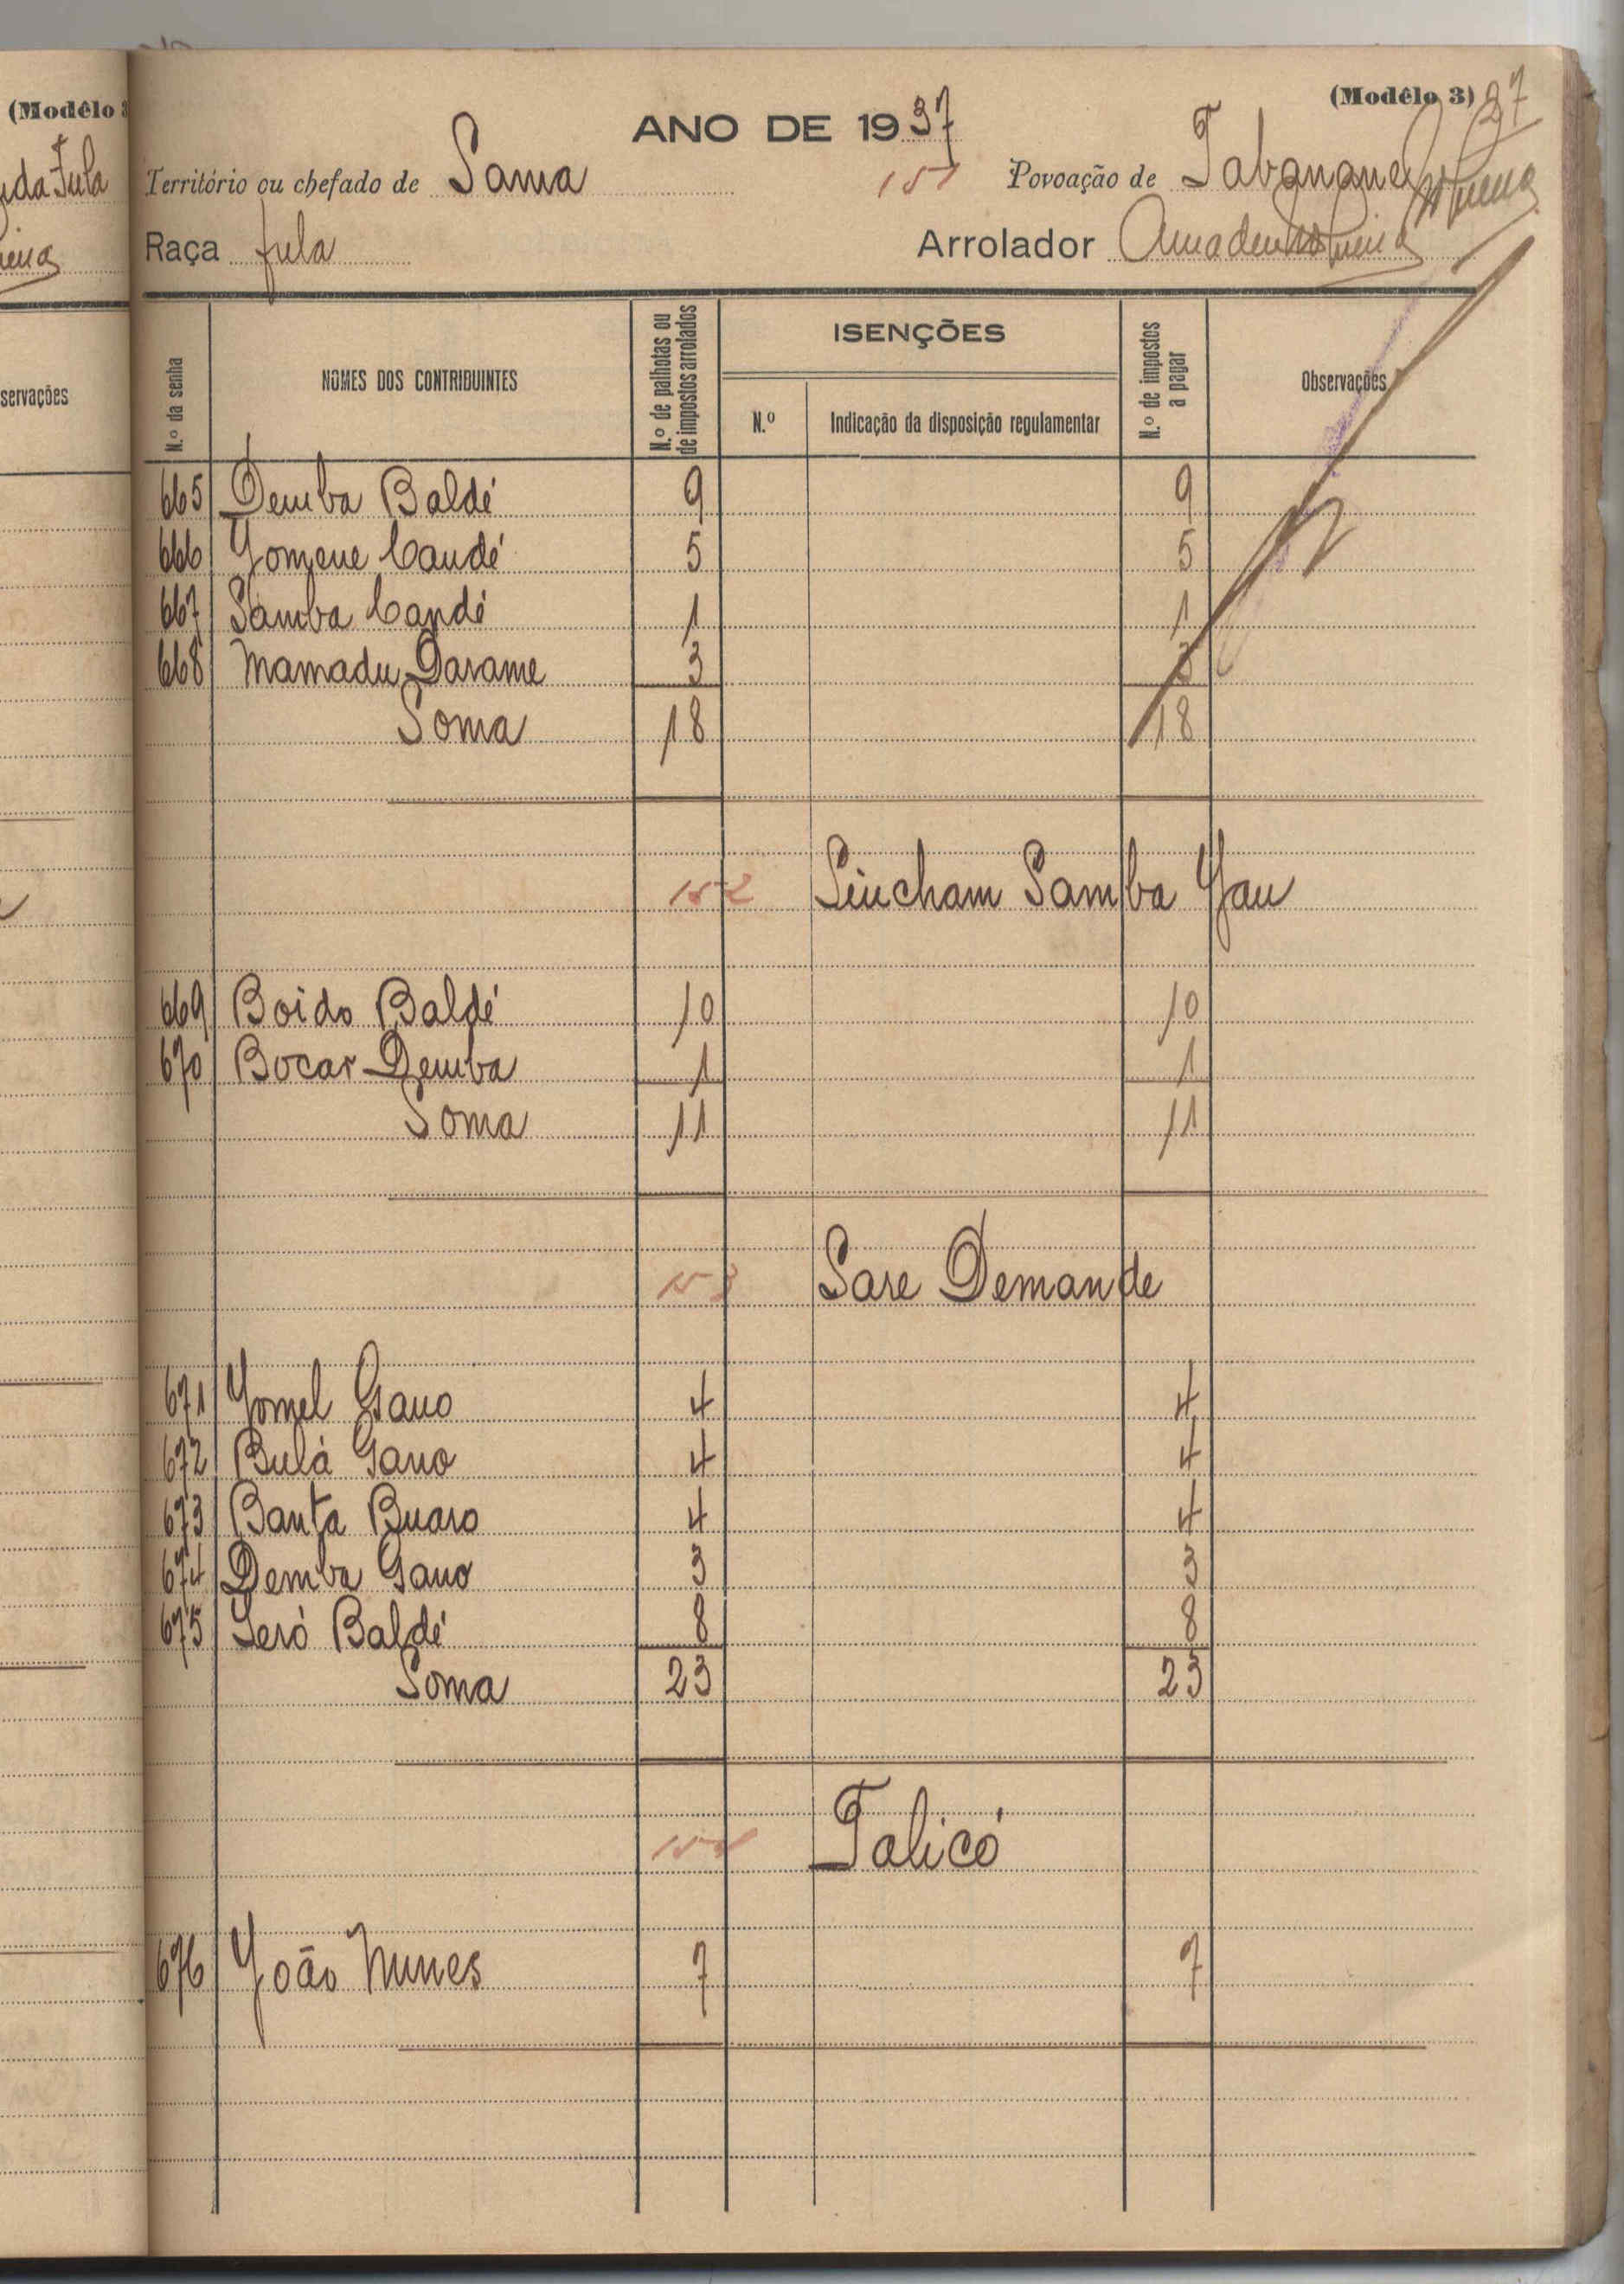 (Modêlo 3
(Modêlo 3) 37
ANO DE 1937
da Fula
Território ou chefado de Sama 151 Povoação de Tabanane
Raça fula Arrolador Amadeu Nogueira
servações
N.º da senha NOMES DOS CONTRIBUINTES N.º de palhotas ou de impostos arrolados ISENÇÕES N.º Indicação da disposição regulamentar N.º de impostos a pagar Observações
665 Demba Baldé 9 9
666 Gomene Candé 5 5
667 Samba Candé 1 1
668 Mamadu Darame 3 3
Soma 18 18
152 Sincham Samba Gau
669 Boido Baldé 10 10
670 Bocar Demba 1 1
Soma 11 11
153 Sare Demande
671 Gomel Gano 4 4
672 Bulá Gano 4 4
673 Banta Buaro 4 4
674 Demba Gano 3 3
675 Seró Baldé 8 8
Soma 23 23
154 Talicó
676 João Nunes 7 7